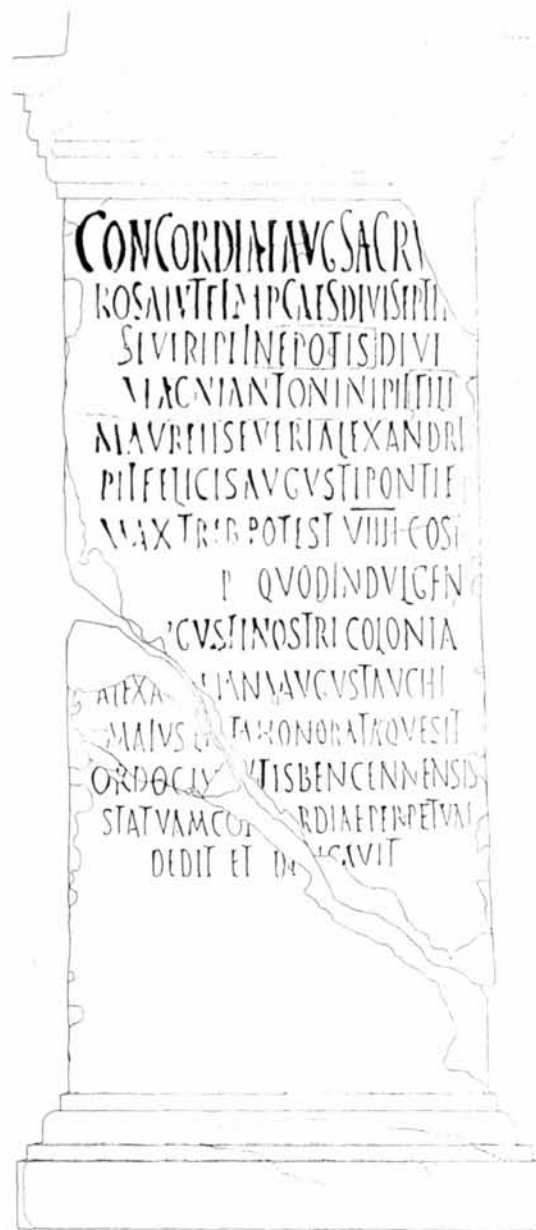 CONCORDIAE AVG SACRV
RO SALVTE IMP CAES DIVI SEPTI
SEVERI PII NEPOTIS DIVI
MAGNI ANTONINI PII FILI
M AVRELI SEVERI ALEXANDRI
PII FELICIS AVGVSTI PONTIF
MAX TRIB POTEST VIIII COS
P QVOD INDVLGEN
VGVSTI NOSTRI COLONIA
ALEXA IANA AVGVSTA VCHI
MAIVS TA HONORATAQVE SIT
ORDO CIV TIS BENCENNENSIS
STATVAM CO RDIAE PERPETVAE
DEDIT ET D ICAVIT